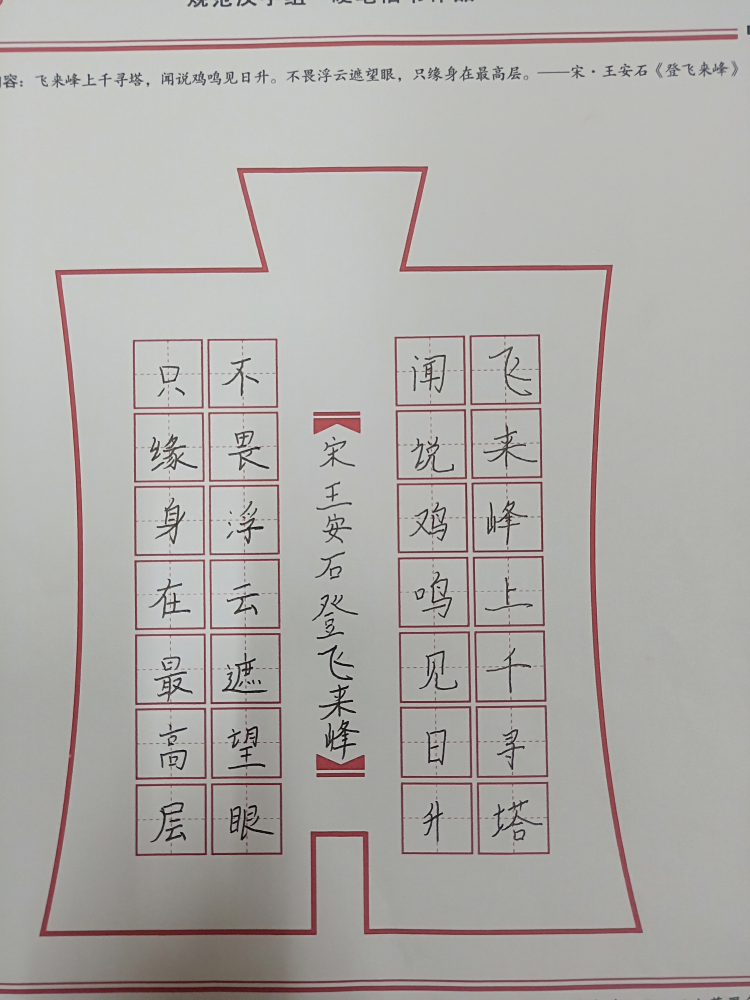 容：飞来峰上千寻塔，闻说鸡鸣见日升。不畏浮云遮望眼，只缘身在最高层。——宋·王安石《登飞来峰》
飞来峰上千寻塔
闻说鸡鸣见日升
宋王安石登飞来峰
不畏浮云遮望眼
只缘身在最高层